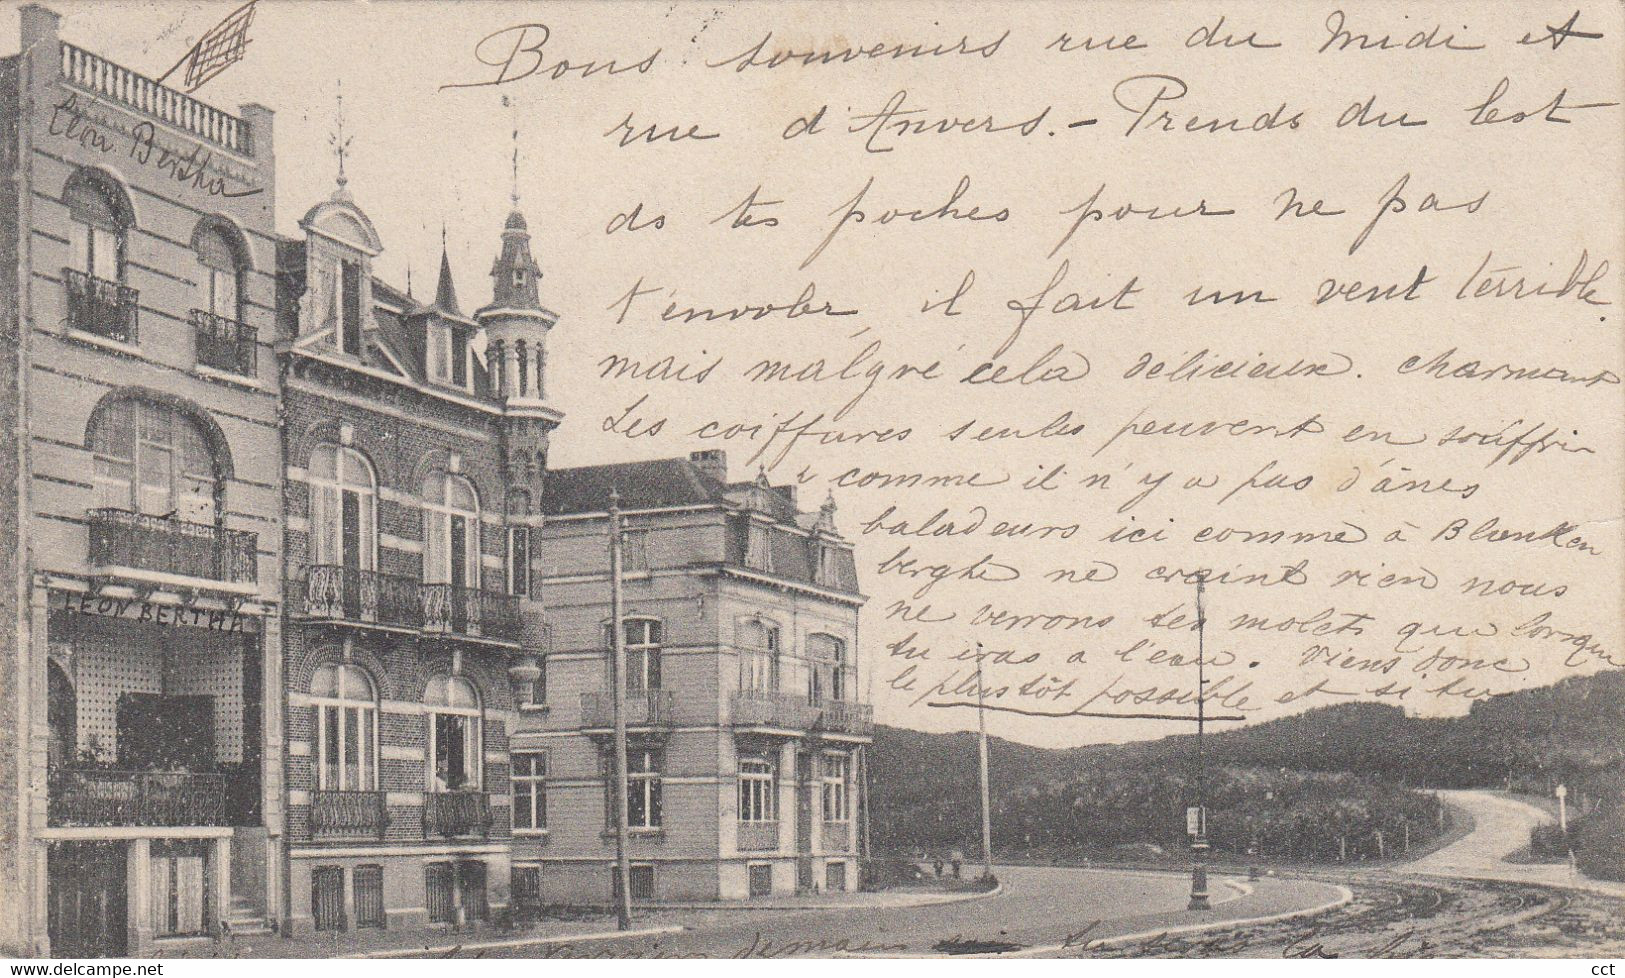 Bons souvenirs rue du Midi et
rue d'Anvers. - Prends du lest
ds tes poches pour ne pas
t'envoler, il fait un vent terrible.
mais malgré cela délicieux. charmant
Les coiffures seules peuvent en souffrir
comme il n'y a pas d'ânes
baladeurs ici comme à Blanken
berghe ne craint rien nous
ne verrons tes molets que lorsque
tu iras a l'eau. Viens donc
le plus tôt possible et si tu
demain
Léon Bertha
LEON BERTHA
cct